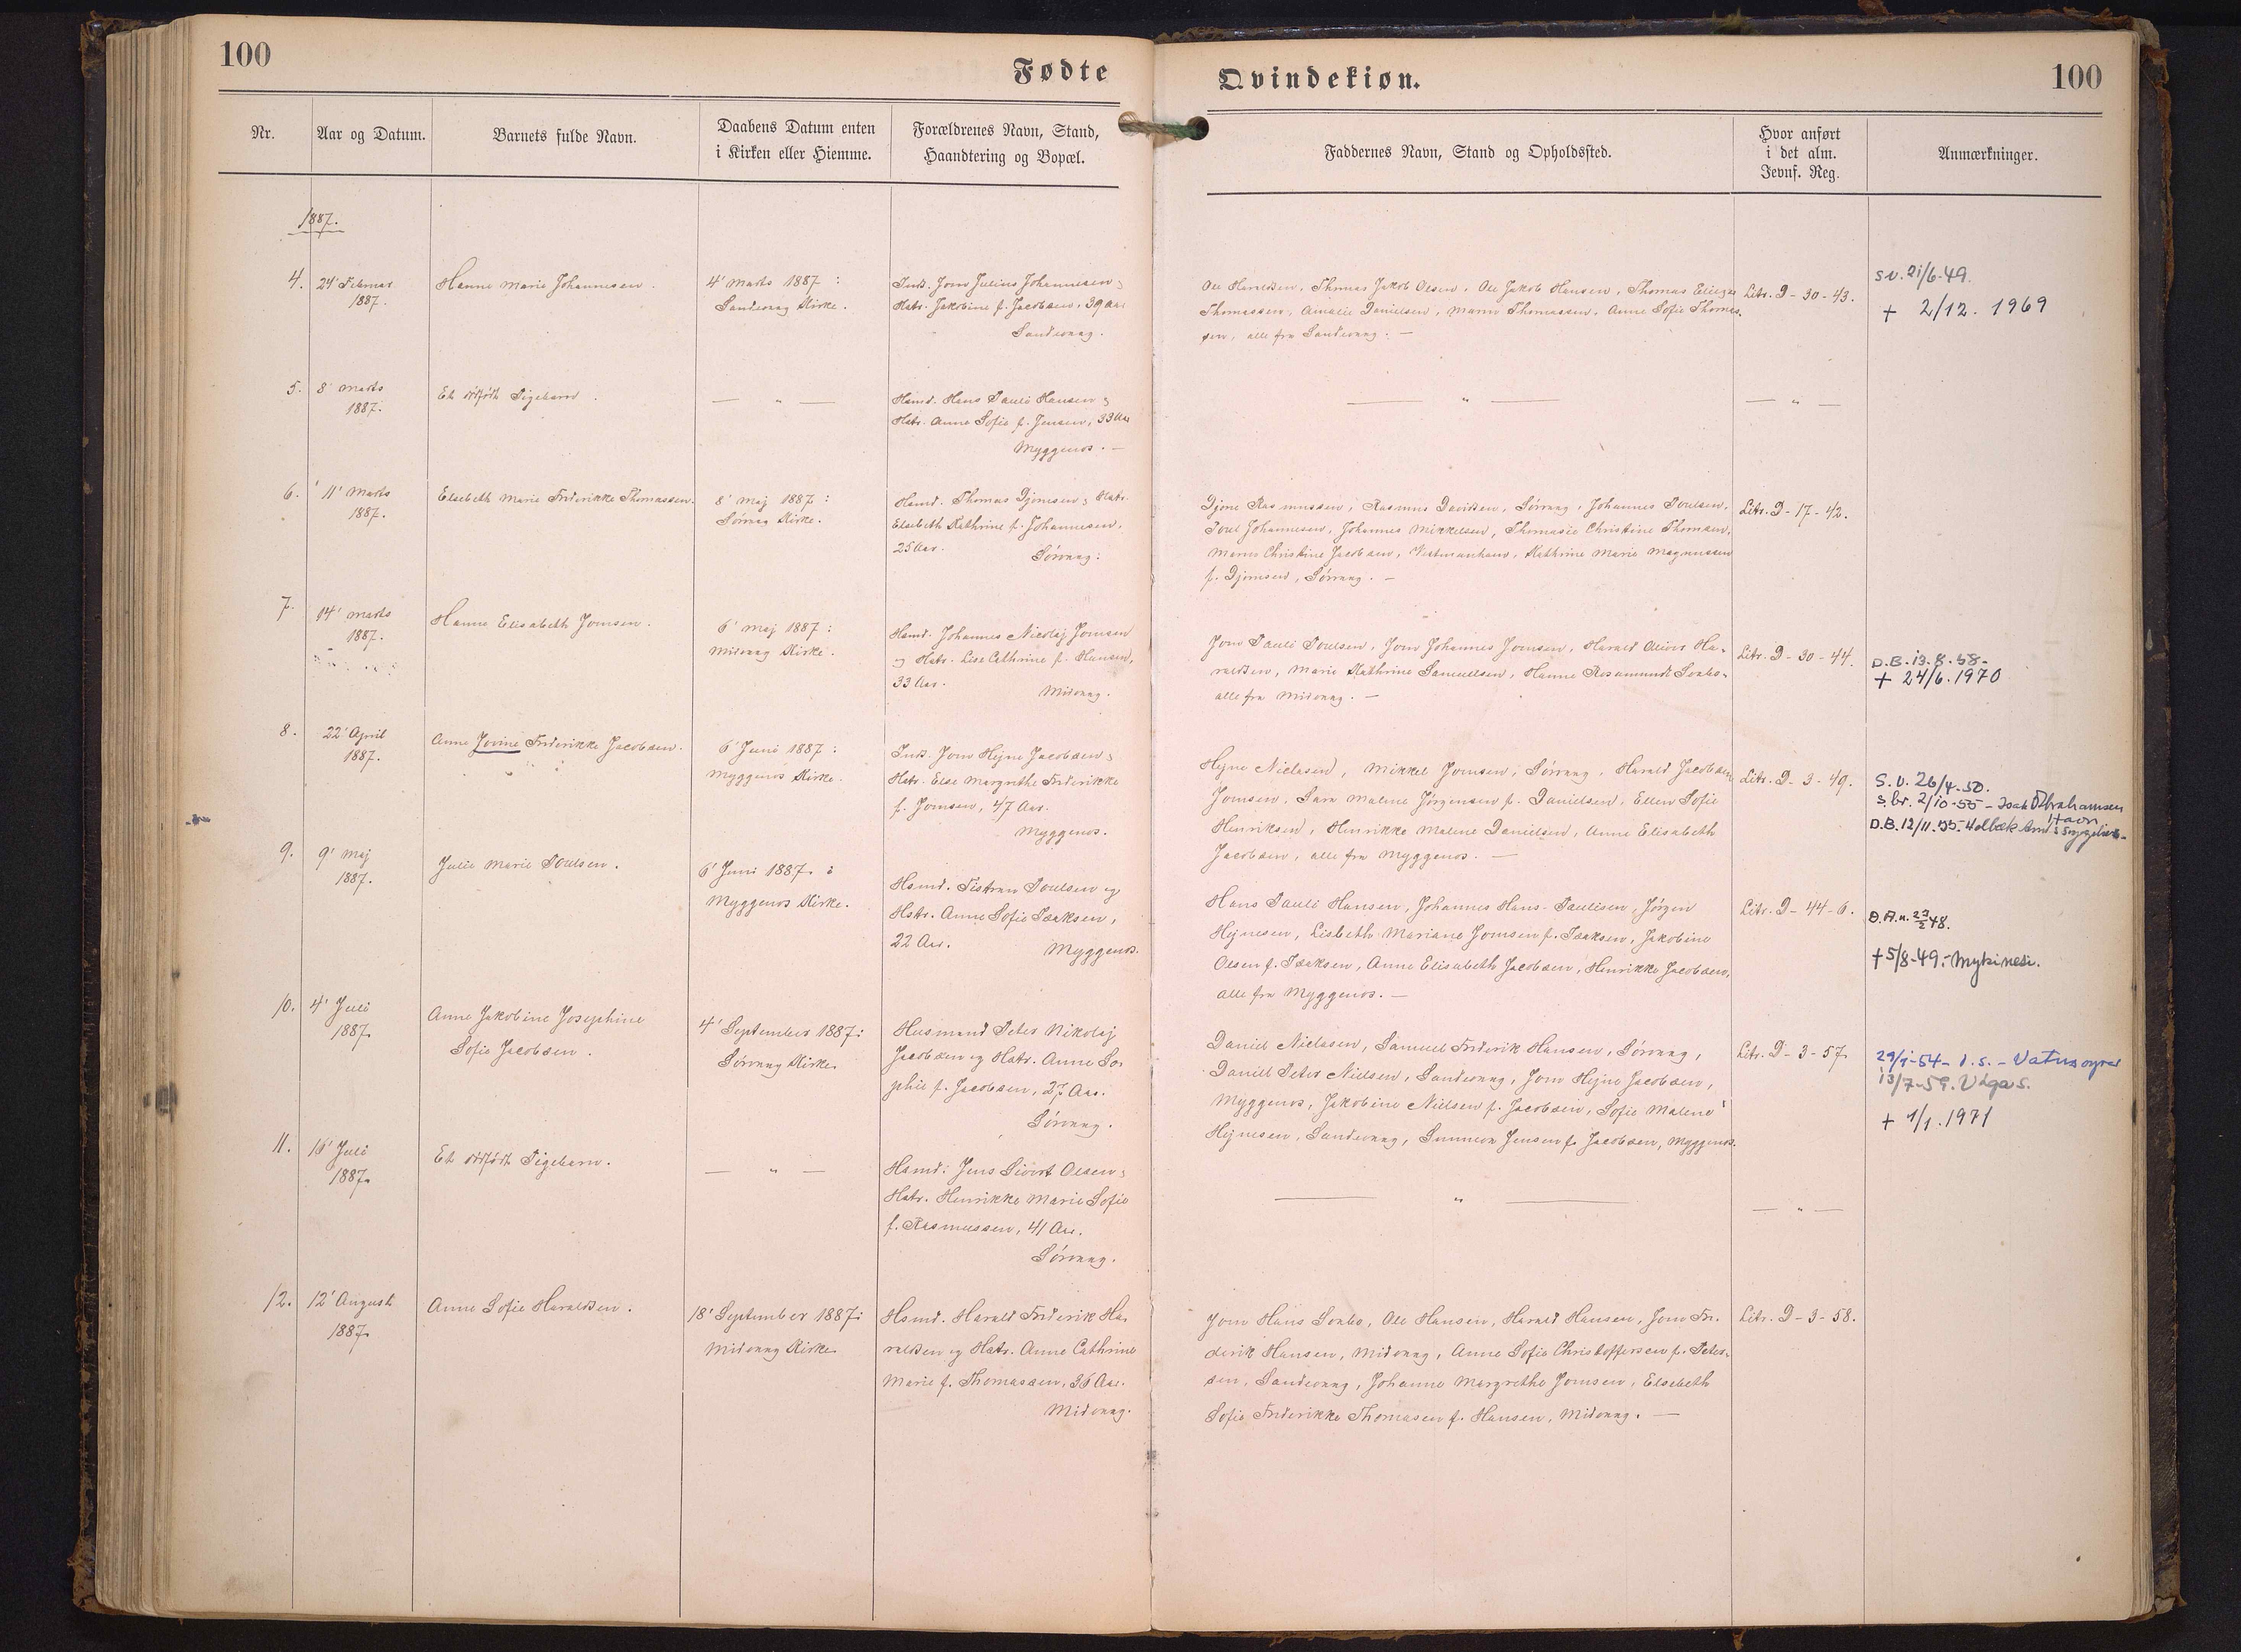 100
Fødte
Qvindekiøn.
100
Nr.
Aar og Datum.
Barnets fulde Navn.
Daabens Datum enten
i Kirken eller Hiemme.
Forældrenes Navn, Stand,
Haandtering og Bopæl.
Faddernes Navn, Stand og Opholdssted.
Hvor anført
i det alm.
Jevnf. Reg.
Anmærkninger.
1887.
4.
24' Februar
1887.
Hanne Marie Johannesen.
4' Marts 1887:
Sandevaag Kirke.
Inds. Joen Julius Johannesen &
Hstr. Jakobine f. Jacobsen, 39 Aar
Sandevaag.
Ole Haraldsen, Thomas Jakob Olsen, Ole Jakob Hansen, Thomas
Thomassen, Amalie Danielsen, Maren Thomassen, Anne Sofie Thomas-
sen, alle fra Sandevaag. —
Litr. D - 30 - 43.
S.V. 21/6-49.
+ 2/12. 1969
5.
8' Marts
1887.
Et dödfödt Pigebarn.
— " —
Hsmd. Hans Pauli Hansen &
Hstr. Anne Sofie f. Jensen, 33 Aar
Myggenæs. —
— " —
— " —
6.
11' Marts
1887.
Elsebeth Marie Frederikke Thomassen.
8' Maj 1887:
Sörvaag Kirke.
Hsmd. Thomas Djonesen & Hstr.
Elsebeth Kathrine f. Johannesen,
25 Aar.
Sörvaag:
Djone Rasmussen, Rasmus Davidsen, Sörvaag, Johannes Poulsen,
Poul Johannesen, Johannes Mikkelsen, Thomasie Christine Thomsen,
Maren Christine Jacobsen, Vestmanhavn, Kathrine Marie Magnussen
f. Djonesen, Sörvaag. —
Litr. D - 17 - 42.
7.
14' Marts
1887.
Hanne Elisabeth Joensen.
6' Maj 1887:
Midvaag Kirke.
Hsmd. Johannes Nicolaj Joensen
og Hstr. Lise Cathrine f. Hansen,
33 Aar.
Midvaag.
Joen Pauli Poulsen, Joen Johannes Joensen, Harald Oliver Ha-
raldsen, Marie Kathrine Samuelsen, Hanne Rosamunde Sonbo.
alle fra Midvaag. —
Litr. D - 30 - 44.
D.B. 13.8.58-
+ 24/6. 1970
8.
22' April
1887.
Anne Jovine Frederikke Jacobsen.
6' Juni 1887:
Myggenæs Kirke.
Inds. Joen Hejne Jacobsen &
Hstr. Else Margrethe Frederikke
f. Joensen, 47 Aar.
Myggenæs.
Hejne Niclasen, Mikkel Joensen, Sörvaag, Harald Jacobsen
Joensen, Sara Malene Jörgensen f. Danielsen, Ellen Sofie
Henriksen, Henrikke Malene Danielsen, Anne Elisabeth
Jacobsen, alle fra Myggenæs. —
Litr. D - 3 - 49.
S.V. 26/4.50.
S.br. 2/10-55 - Isak Abrahamsen
Havn
D.B. 12/11.55. Holbæk Amts Sygehus-
9.
9' Maj
1887.
Julie Marie Poulsen.
6' Juni 1887:
Myggenæs Kirke.
Hsmd. Tistran Poulsen og
Hstr. Anne Sofie Isaksen,
22 Aar.
Myggenæs.
Hans Pauli Hansen, Johannes Hans-Paulisen, Jörgen
Hejnesen, Lisbeth Mariane Joensen f. Isaksen, Jakobine
Olsen f. Isaksen, Anne Elisabeth Jacobsen, Henrikke Jacobsen,
alle fra Myggenæs. —
Litr. D - 44 - 6.
D.A.n. 23/2 48.
+ 5/8-49.- Mykinesi.
10.
4' Juli
1887.
Anne Jakobine Josephine
Sofie Jacobsen.
4' September 1887:
Sörvaag Kirke.
Husmand Peter Nikolaj
Jacobsen og Hstr. Anne So-
phie f. Jacobsen, 27 Aar.
Sörvaag.
Daniel Niclasen, Samuel Frederik Hansen, Sörvaag,
Daniel Peter Nielsen, Sandevaag, Joen Hejne Jacobsen,
Myggenæs, Jakobine Nielsen f. Jacobsen, Sofie Malene
Hejnesen, Sandevaag, Sunneva Jensen f. Jacobsen, Myggenæs.
Litr. D - 3 - 57.
29/1-54- d.s. - Vatnsoyrar
13/7-59. Vága s.
+ 1/1. 1971
11.
16' Juli
1887.
Et dödfödt Pigebarn.
— " —
Hsmd. Jens Sivert Olsen &
Hstr. Henrikke Marie Sofie
f. Rasmussen, 41 Aar.
Sörvaag.
— " —
— " —
12.
12' August
1887.
Anne Sofie Haraldsen.
18' September 1887:
Midvaag Kirke.
Hsmd. Harald Frederik Ha-
raldsen og Hstr. Anne Cathrine
Marie f. Thomassen, 36 Aar.
Midvaag.
Joen Hans Sonbo, Ole Hansen, Harald Hansen, Joen Fre-
derik Hansen, Midvaag, Anne Sofie Christoffersen f. Peter-
sen, Sandevaag, Johanne Margrethe Joensen, Elsebeth
Sofie Frederikke Thomasen f. Hansen, Midvaag. —
Litr. D - 3 - 58.